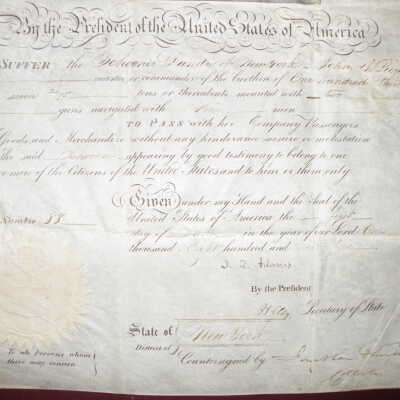 By the President of the United States of America
SUFFER the Schooner of New York John
master or commander of the burthen of One hundred
seven tons or thereabouts mounted with
guns navigated with men
TO PASS with her Company Passengers
Goods and Merchandize without any hinderance seisure or molestation
the said appearing by good testimony to belong to one
or more of the Citizens of the United States and to him or them only
Given under my Hand and the Seal of the
United States of America the
day of in the year of our Lord One
thousand Eight hundred and
Number 88
J. Q. Adams
By the President
H Clay Secretary of State
State of
District of
New York
Countersigned by Jonathan
To all Persons whom
these may concern